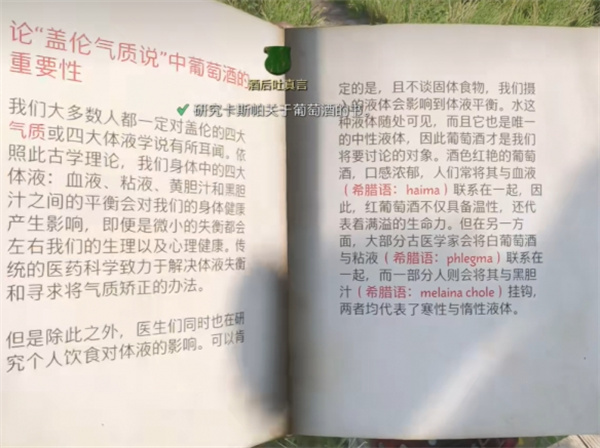 论“盖伦气质说”中葡萄酒的
重要性
酒后吐真言
研究卡斯帕关于葡萄酒的书。
我们大多数人都一定对盖伦的四大
气质或四大体液学说有所耳闻。依
照此古学理论，我们身体中的四大
体液：血液、粘液、黄胆汁和黑胆
汁之间的平衡会对我们的身体健康
产生影响，即便是微小的失衡都会
左右我们的生理以及心理健康。传
统的医药科学致力于解决体液失衡
和寻求将气质矫正的办法。
但是除此之外，医生们同时也在研
究个人饮食对体液的影响。可以肯
定的是，且不谈固体食物，我们摄
入的液体会影响到体液平衡。水这
种液体随处可见，而且它也是唯一
的中性液体，因此葡萄酒才是我们
将要讨论的对象。酒色红艳的葡萄
酒，口感浓郁，人们常将其与血液
（希腊语：haima）联系在一起，因
此，红葡萄酒不仅具备温性，还代
表着满溢的生命力。但在另一方
面，大部分古医学家会将白葡萄酒
与粘液（希腊语：phlegma）联系在
一起，而一部分人则会将其与黑胆
汁（希腊语：melaina chole）挂钩，
两者均代表了寒性与惰性液体。